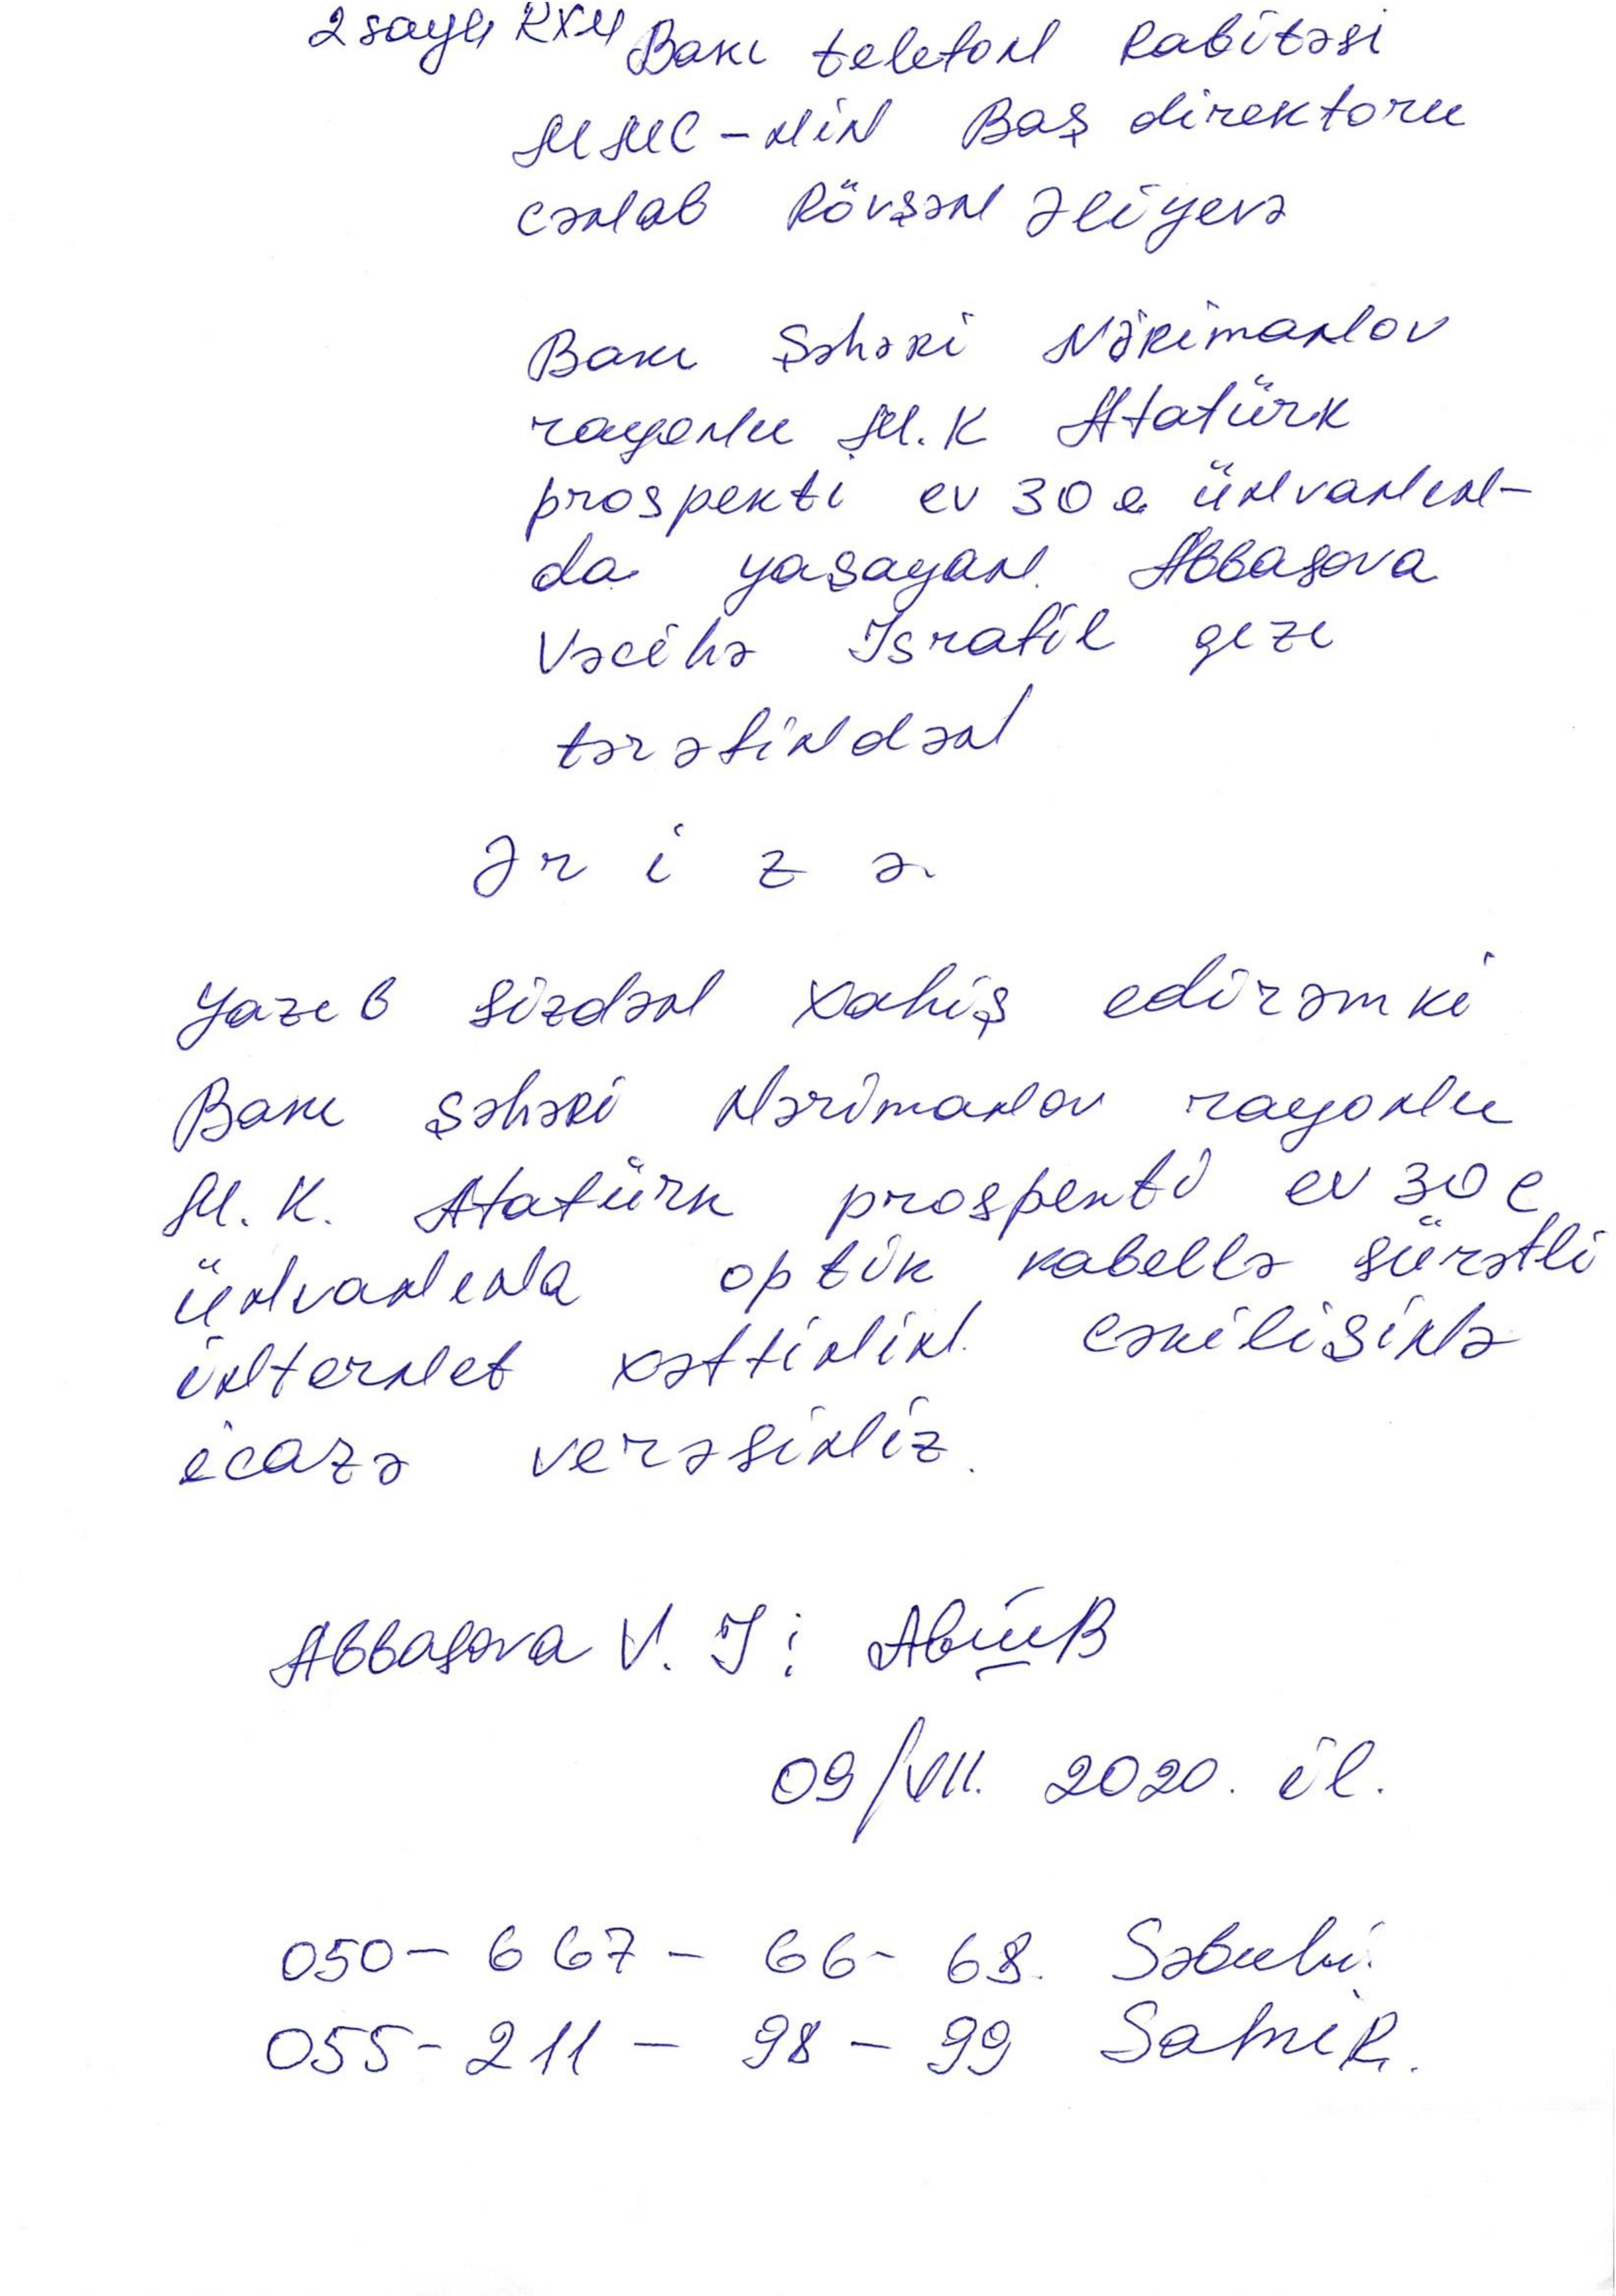 2 saylı RXM Bakı telefon Rabitəsi
MMC-nin Baş direktoru
cənab Rövşən Əliyevə
Bakı Şəhəri Nərimanov
rayonu M.K Atatürk
prospekti ev 30 e ünvanın-
da yaşayan Abbasova
Vəcihə Israfil qızı
tərəfindən
Ərizə
Yazıb sizdən xahiş edirəm ki
Bakı şəhəri Nərimanov rayonu
M.K. Atatürk prospekti ev 30 e
ünvanına optik kabellə sürətli
internet xəttinin çəkilişinə
icazə verəsiniz.
Abbasova V. I:
09/VII. 2020. il.
050- 667 - 66- 68. Səbuhi.
055- 211 - 98 - 99 Samir.